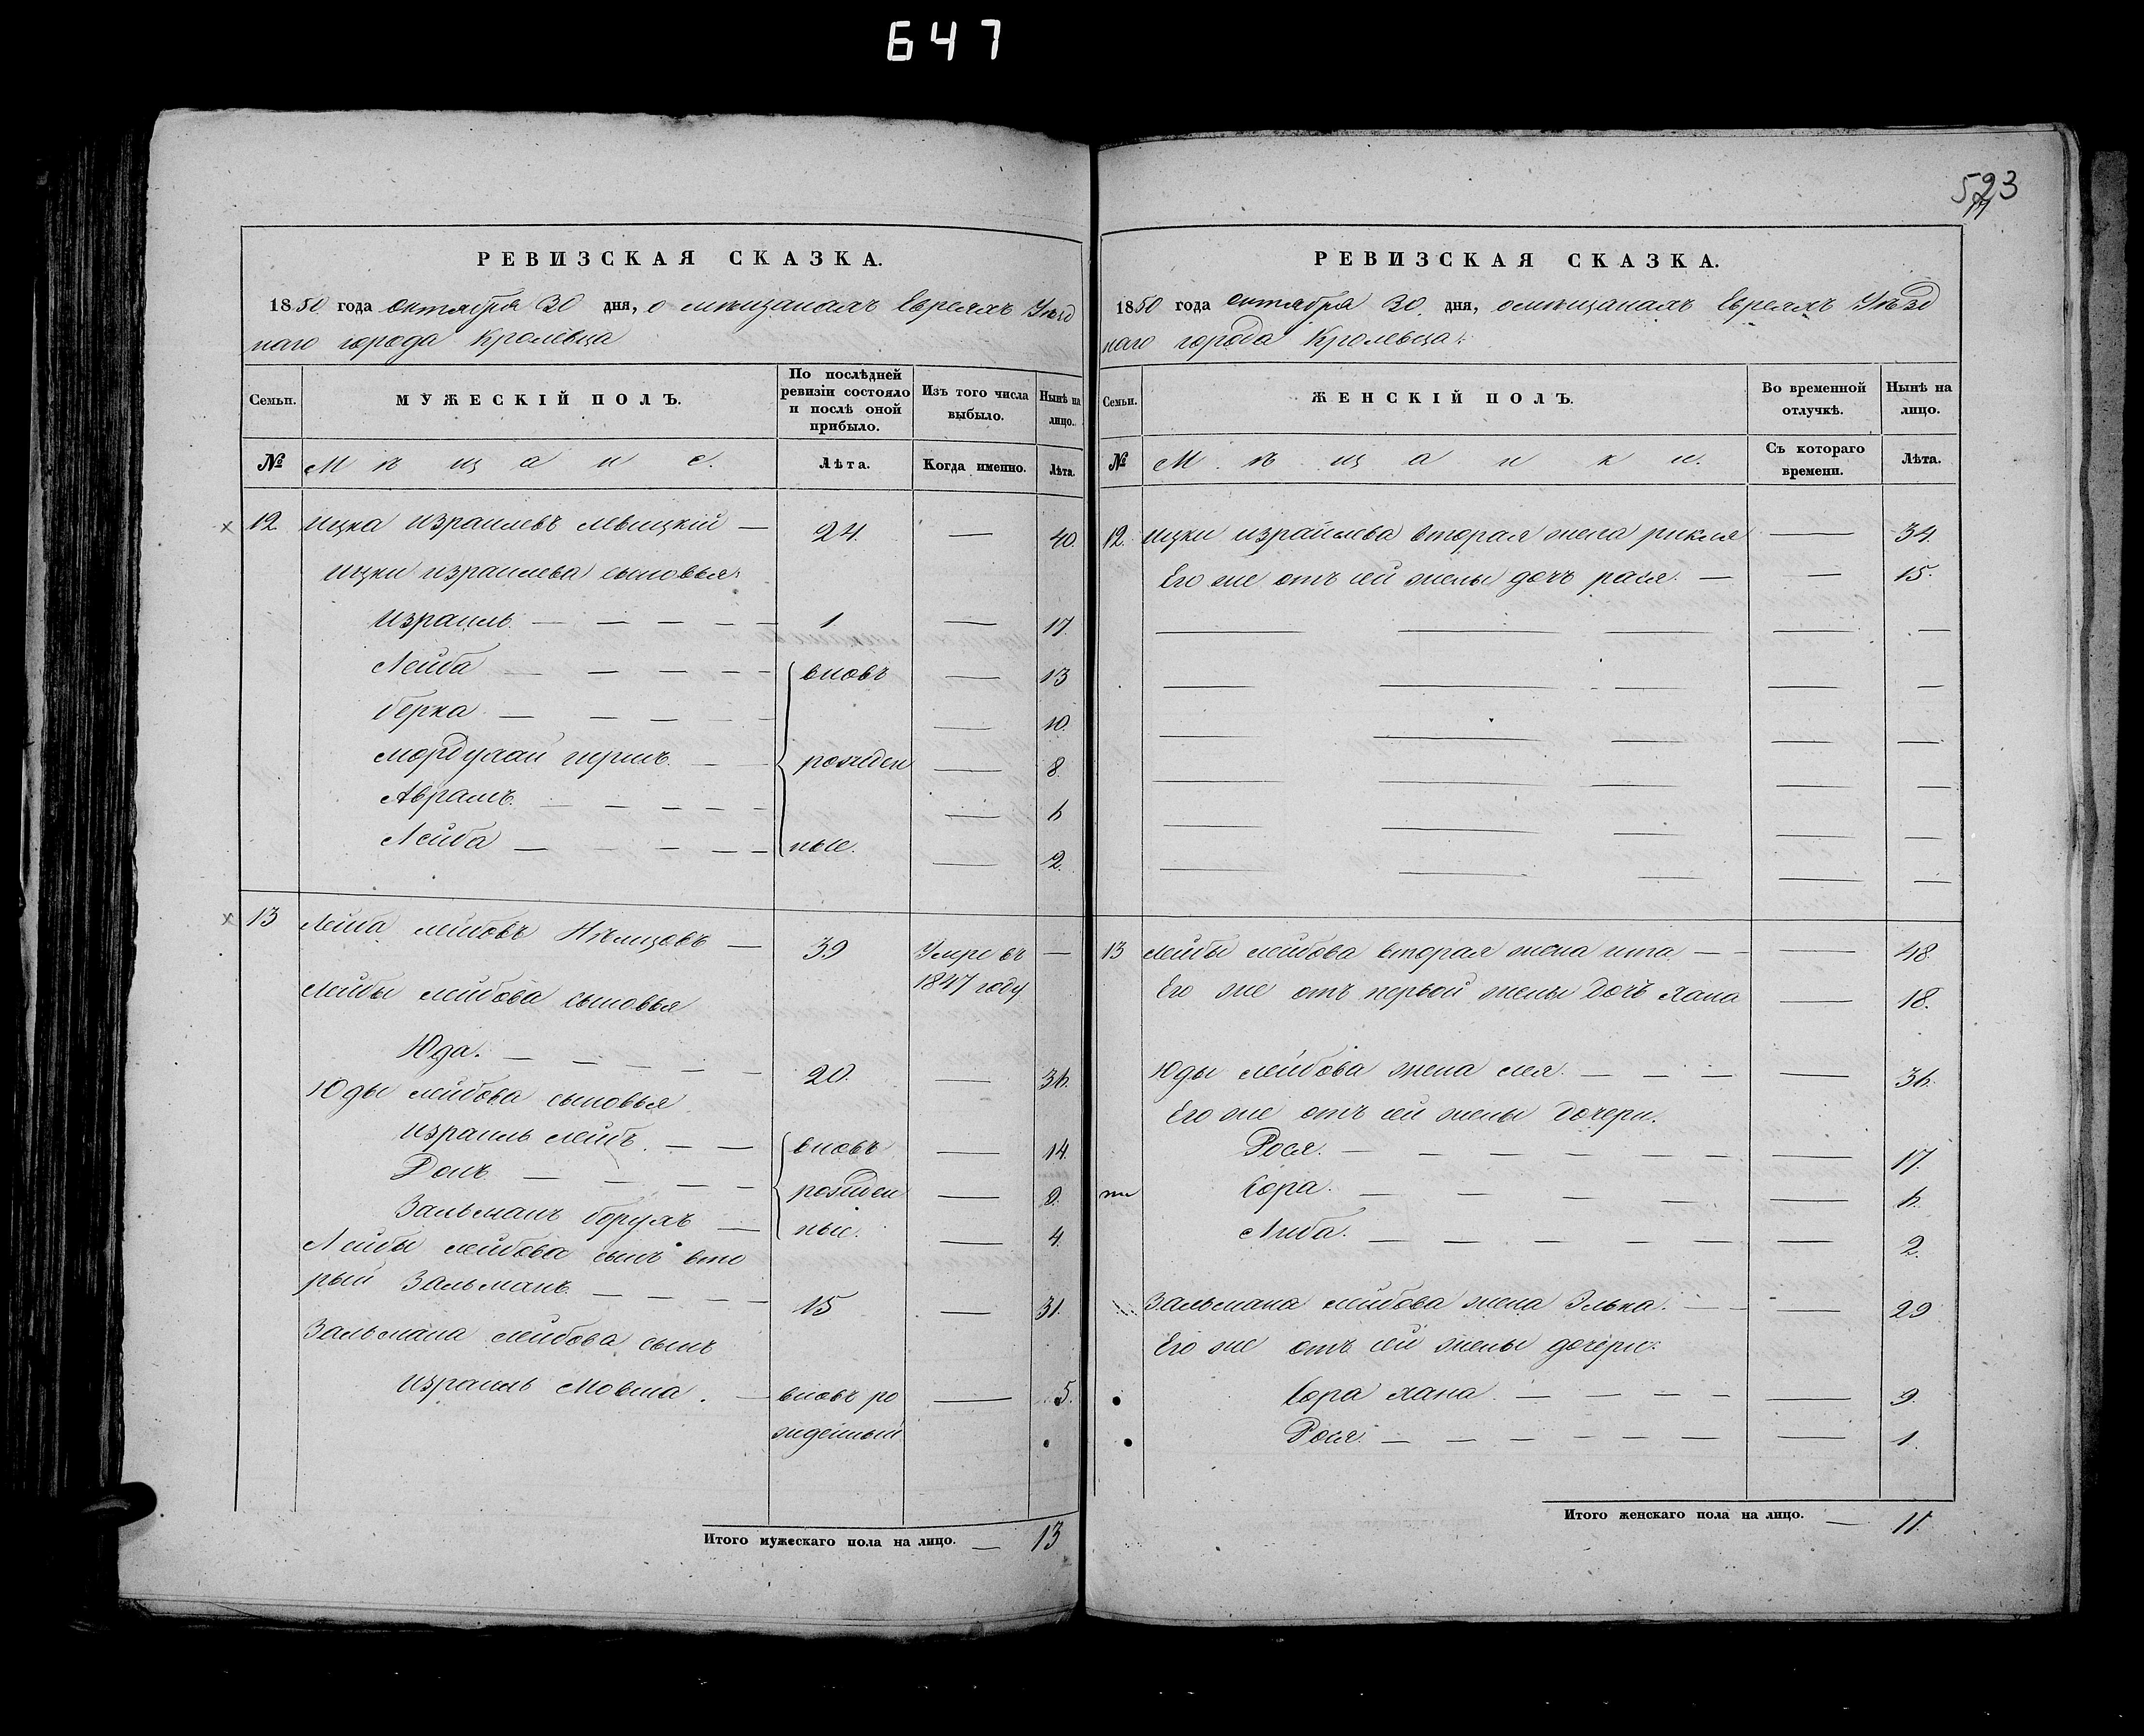 647
523
РЕВИЗСКАЯ СКАЗКА.
1850 года октября 30 дня, о мѣщанахъ Евреяхъ Уѣзд
наго города Кролевца
Семьи.
МУЖЕСКІЙ ПОЛЪ.
По послѣдней
ревизіи состояло
и послѣ оной
прибыло.
Изъ того числа
выбыло.
Нынѣ на
лицо.
№
Мѣщане.
Лѣта.
Когда именно.
Лѣта.
12 Ицка Израилевъ Левицкій — 24. — 40.
Ицки Израилева сыновья:
Израиль. — 1 — 17.
Лейба — вновь — 13
Берка — — 10.
Мордухай гершъ. — рожден — 8.
Аврамъ. — — 6
Лейба — ные. — 2.
13 Лейба лейбовъ — 39 Умре въ —
1847 году
Лейбы лейбова сыновья
Юда. — 20. — 36.
Юды лейбова сыновья
Израиль лейбъ. — вновь — 14.
— рожден — 9.
Зальманъ борухъ — ные. — 4.
Лейбы лейбова сынъ вто
рый Зальманъ. — 15 — 31.
Зальмана лейбова сынъ
Израиль Мовша. — вновь ро — 5.
жденный
Итого мужескаго пола на лицо. — 13
РЕВИЗСКАЯ СКАЗКА.
1850 года октября 30. дня, о мѣщанахъ Евреяхъ Уѣзд
наго города Кролевца.
Семьи.
ЖЕНСКІЙ ПОЛЪ.
Во временной
отлучкѣ.
Нынѣ на
лицо.
№
Мѣщанки.
Съ котораго
времени.
Лѣта.
12. Ицки израйлева вторая жена рикля — 34.
Его же отъ сей жены дочь рася. — — 15.
13 Лейбы лейбова вторая жена ита — — 48
Его же отъ первой жены дочь хана — 18.
Юды лейбова жена лея. — — 36.
Его же отъ сей жены дочери.
Рося. — — 17.
Сора. — — 6.
Либа. — — 2.
Зальмана лейбова жена Элька. — — 29
Его же отъ сей жены дочери:
Сора хана. — — 9.
Рося. — — 1.
Итого женскаго пола на лицо. — 11.